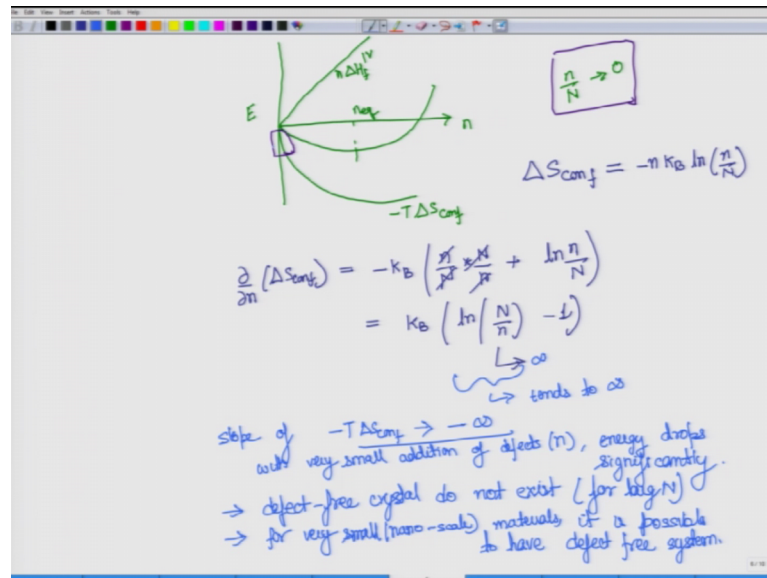 File Edit View Insert Actions Tools Help
n ΔH_f^{IV}
n/N → 0
E
n_eq
n
ΔS_conf = -n k_B ln(n/N)
-TΔS_conf
∂/∂n (ΔS_conf) = -k_B (n/N * N/n + ln n/N)
= k_B (ln(N/n) - 1)
↳ ∞
↳ tends to ∞
slope of -TΔS_conf → -∞
with very small addition of defects (n), energy drops
significantly.
→ defect-free crystal do not exist (for big N)
→ for very small (nano-scale) materials it is possible
to have defect free system.